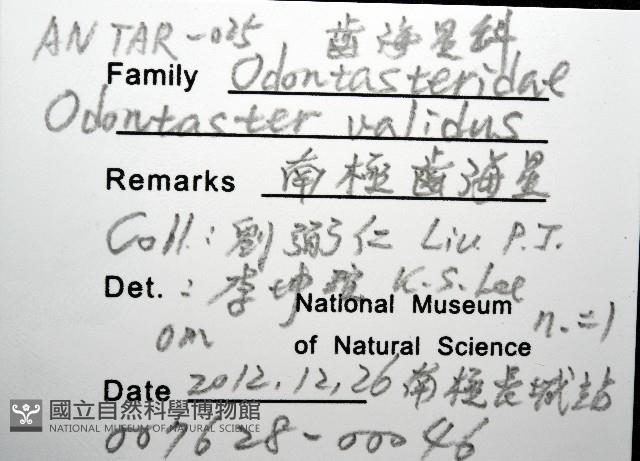 ANTAR-025 齒海星科
Family Odontasteridae
Odontaster validus
Remarks 南極齒海星
Coll.: 劉弼仁 Liu P.J.
Det.: 李坤瑄 K.S. Lee
National Museum
0m of Natural Science n.=1
Date 2012.12.26 南極長城站
國立自然科學博物館
NATIONAL MUSEUM OF NATURAL SCIENCE
007628-00046